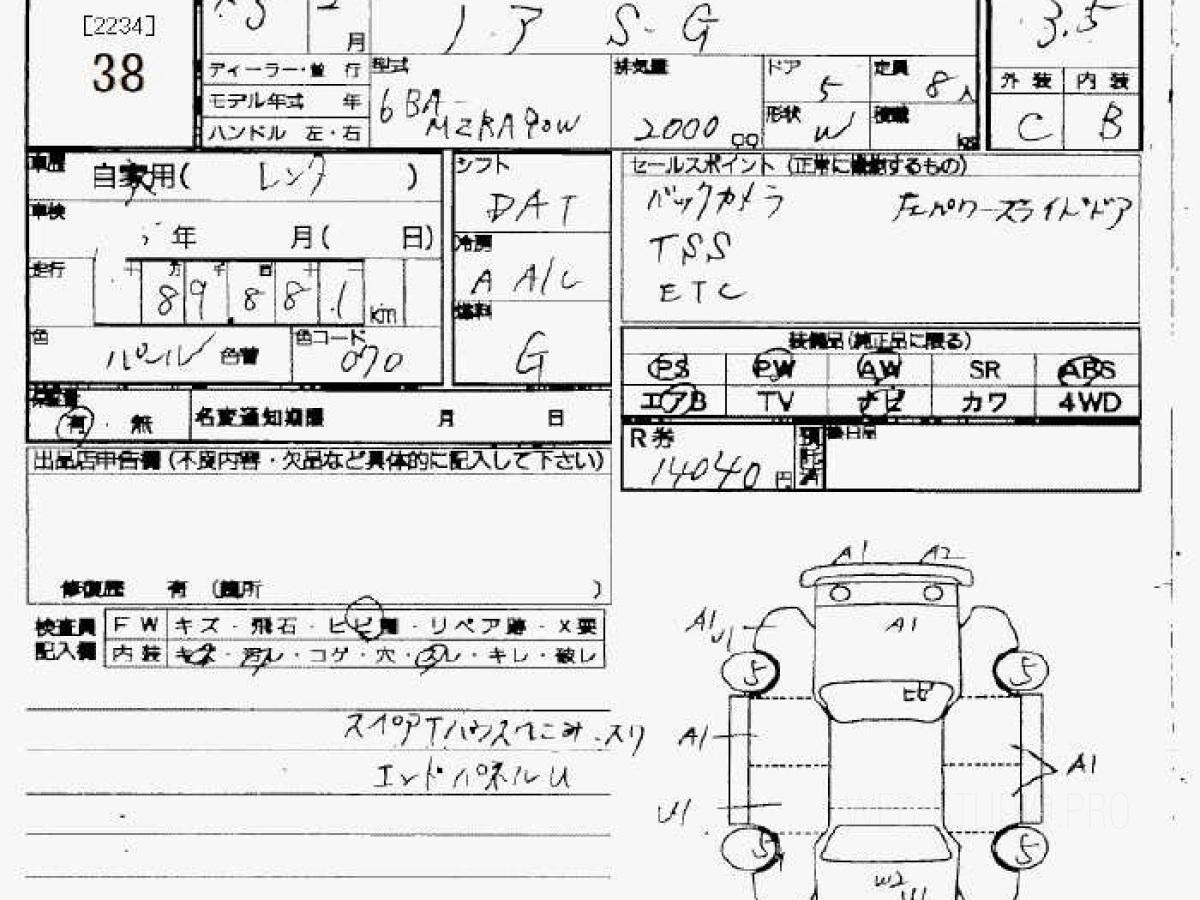 [2234]
38
月
ノア S-G
3.5
ディーラー・並行
モデル年式 年
ハンドル 左・右
型式
6BA-
MZRA90W
排気量
2000 cc
ドア
5
定員
8人
形状
W
積載
kg
外装 内装
C B
車歴
自家用( レンタ )
車検
5年 月( 日)
走行
十 万 千 百 十 一
89,881 km
色
パール 色替
色コード
070
シフト
DAT
冷房
A A/C
燃料
G
セールスポイント (正常に機能するもの)
バックカメラ 左パワースライドドア
TSS
ETC
装備品(純正品に限る)
PS PW AW SR ABS
エアB TV ナビ カワ 4WD
保証書
有・無
名変通知期限 月 日
R券
14040 円
預託済
後日品
出品店申告欄(不良内容・欠品など具体的に記入して下さい)
修復歴 有 (箇所 )
検査員
記入欄
FW キズ・飛石・ヒビ割・リペア跡・X要
内装 キズ・汚レ・コゲ・穴・スレ・キレ・破レ
スペアTハウスへこみ.スリ
エンドパネルU
A1 A2
A1
U1
A1
5 5
ヒビ
A1 A1
U1
5 5
W2